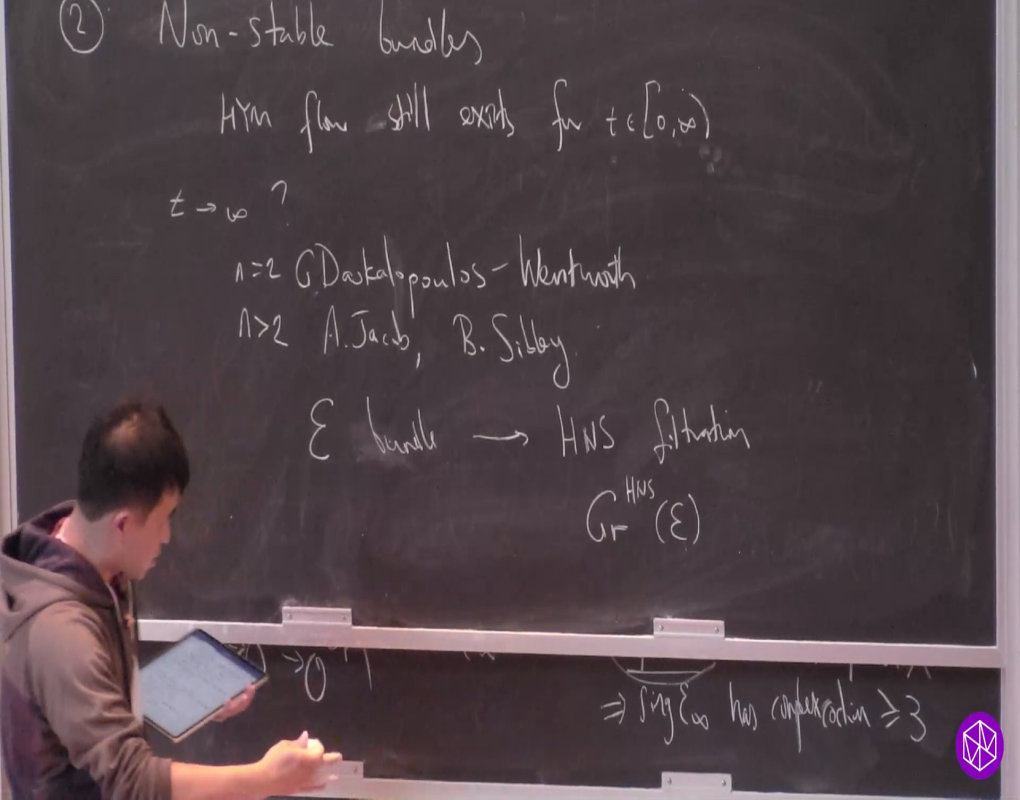 ② Non-stable bundles
HYM flow still exists for t ∈ [0,∞)
t → ∞ ?
n=2 G Daskalopoulos - Wentworth
n>2 A. Jacob, B. Sibley.
ℰ bundle → HNS filtration
Gr^HNS (ℰ)
→ 0
⇒ Sing ℰ∞ has complex codim ≥ 3